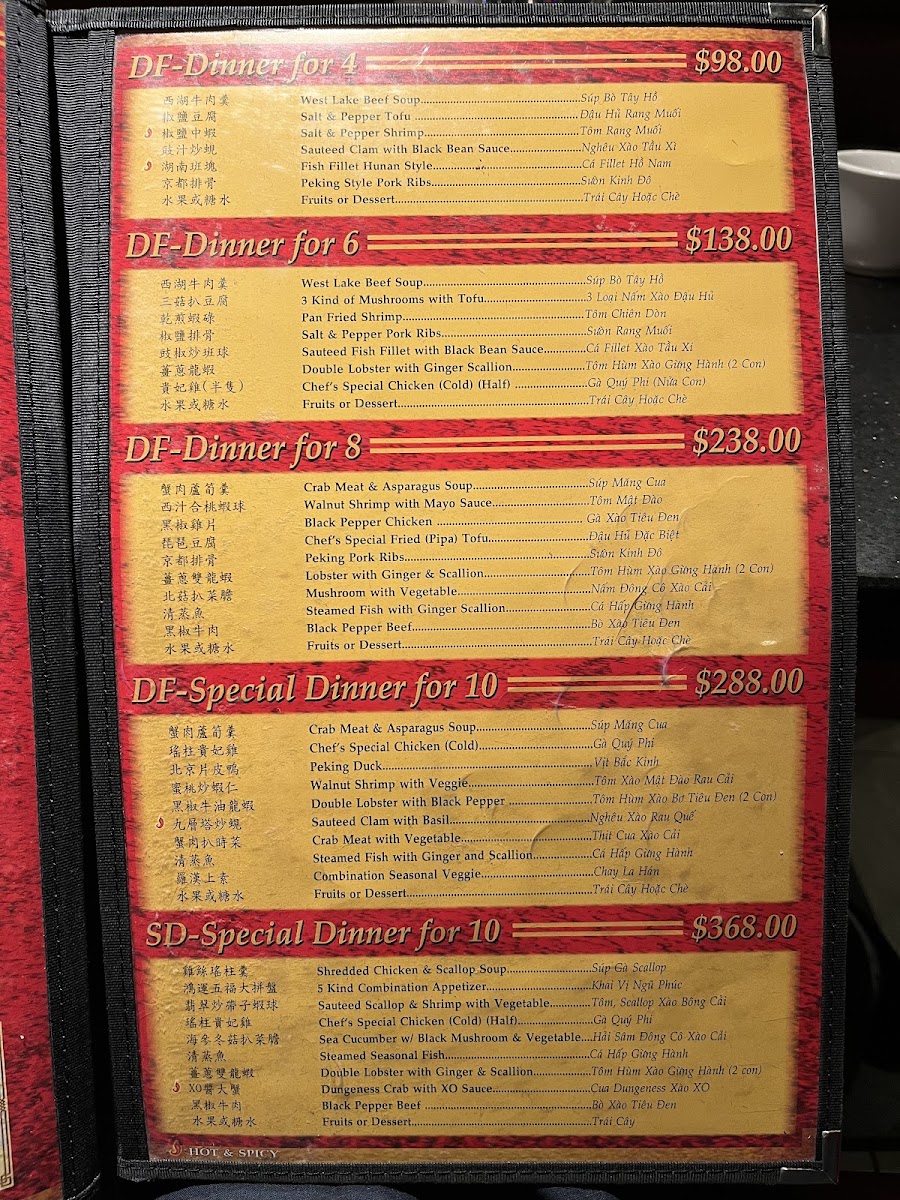 DF-Dinner for 4 $98.00
西湖牛肉羹 West Lake Beef Soup Súp Bò Tây Hồ
椒鹽豆腐 Salt & Pepper Tofu Đậu Hủ Rang Muối
椒鹽中蝦 Salt & Pepper Shrimp Tôm Rang Muối
豉汁炒蜆 Sauteed Clam with Black Bean Sauce Nghêu Xào Tầu Xì
湖南班塊 Fish Fillet Hunan Style Cá Fillet Hồ Nam
京都排骨 Peking Style Pork Ribs Sườn Kinh Đô
水果或糖水 Fruits or Dessert Trái Cây Hoặc Chè
DF-Dinner for 6 $138.00
西湖牛肉羹 West Lake Beef Soup Súp Bò Tây Hồ
三菇扒豆腐 3 Kind of Mushrooms with Tofu 3 Loại Nấm Xào Đậu Hủ
乾煎蝦碌 Pan Fried Shrimp Tôm Chiên Dòn
椒鹽排骨 Salt & Pepper Pork Ribs Sườn Rang Muối
豉椒炒班球 Sauteed Fish Fillet with Black Bean Sauce Cá Fillet Xào Tầu Xì
薑蔥龍蝦 Double Lobster with Ginger Scallion Tôm Hùm Xào Gừng Hành (2 Con)
貴妃雞(半隻) Chef's Special Chicken (Cold) (Half) Gà Quý Phi (Nửa Con)
水果或糖水 Fruits or Dessert Trái Cây Hoặc Chè
DF-Dinner for 8 $238.00
蟹肉蘆筍羹 Crab Meat & Asparagus Soup Súp Măng Cua
西汁合桃蝦球 Walnut Shrimp with Mayo Sauce Tôm Mật Đào
黑椒雞片 Black Pepper Chicken Gà Xào Tiêu Đen
琵琶豆腐 Chef's Special Fried (Pipa) Tofu Đậu Hủ Đặc Biệt
京都排骨 Peking Pork Ribs Sườn Kinh Đô
薑蔥雙龍蝦 Lobster with Ginger & Scallion Tôm Hùm Xào Gừng Hành (2 Con)
北菇扒菜膽 Mushroom with Vegetable Nấm Đông Cô Xào Cải
清蒸魚 Steamed Fish with Ginger Scallion Cá Hấp Gừng Hành
黑椒牛肉 Black Pepper Beef Bò Xào Tiêu Đen
水果或糖水 Fruits or Dessert Trái Cây Hoặc Chè
DF-Special Dinner for 10 $288.00
蟹肉蘆筍羹 Crab Meat & Asparagus Soup Súp Măng Cua
瑤柱貴妃雞 Chef's Special Chicken (Cold) Gà Quý Phi
北京片皮鴨 Peking Duck Vịt Bắc Kinh
蜜桃炒蝦仁 Walnut Shrimp with Veggie Tôm Xào Mật Đào Rau Cải
黑椒牛油龍蝦 Double Lobster with Black Pepper Tôm Hùm Xào Bơ Tiêu Đen (2 Con)
九層塔炒蜆 Sauteed Clam with Basil Nghêu Xào Rau Quế
蟹肉扒時菜 Crab Meat with Vegetable Thịt Cua Xào Cải
清蒸魚 Steamed Fish with Ginger and Scallion Cá Hấp Gừng Hành
羅漢上素 Combination Seasonal Veggie Chay La Hán
水果或糖水 Fruits or Dessert Trái Cây Hoặc Chè
SD-Special Dinner for 10 $368.00
雞絲瑤柱羹 Shredded Chicken & Scallop Soup Súp Gà Scallop
鴻運五福大拼盤 5 Kind Combination Appetizer Khai Vị Ngũ Phúc
翡翠炒帶子蝦球 Sauteed Scallop & Shrimp with Vegetable Tôm, Scallop Xào Bông Cải
瑤柱貴妃雞 Chef's Special Chicken (Cold) (Half) Gà Quý Phi
海參冬菇扒菜膽 Sea Cucumber w/ Black Mushroom & Vegetable Hải Sâm Đông Cô Xào Cải
清蒸魚 Steamed Seasonal Fish Cá Hấp Gừng Hành
薑蔥雙龍蝦 Double Lobster with Ginger & Scallion Tôm Hùm Xào Gừng Hành (2 con)
XO醬大蟹 Dungeness Crab with XO Sauce Cua Dungeness Xào XO
黑椒牛肉 Black Pepper Beef Bò Xào Tiêu Đen
水果或糖水 Fruits or Dessert Trái Cây
HOT & SPICY